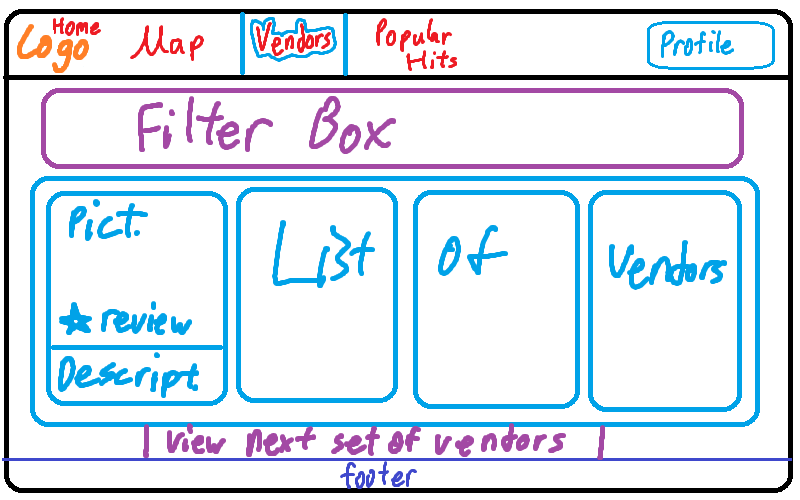 Home
Logo
Map
Vendors
Popular
Hits
Profile
Filter Box
Pict.
review
Descript.
List
of
Vendors
view next set of vendors
footer